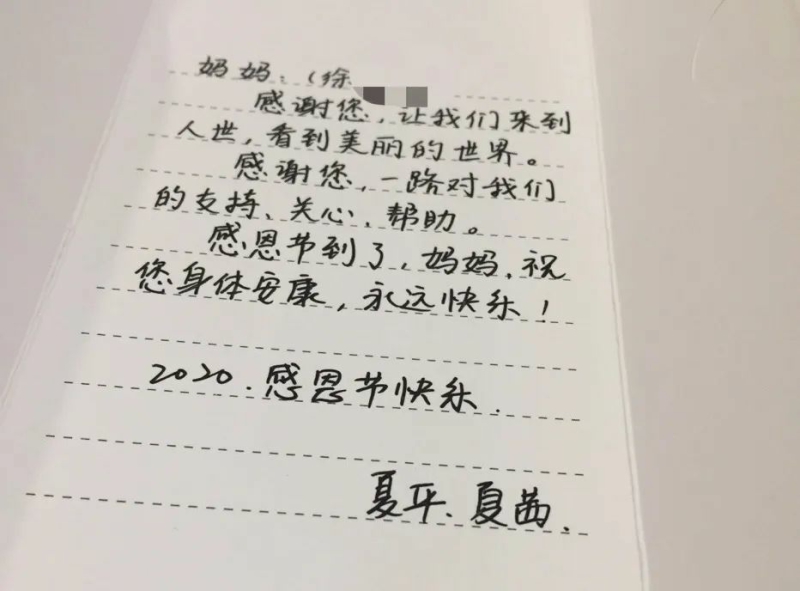 妈妈：（徐
感谢您，让我们来到
人世，看到美丽的世界。
感谢您，一路对我们
的支持、关心、帮助。
感恩节到了，妈妈，祝
您身体安康，永远快乐！
2020.感恩节快乐.
夏平、夏茜.